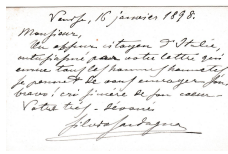 Venise, 16 janvier 1898.
Monsieur,
Un obscur citoyen d'Italie,
enthousiasmé par votre lettre qui
comme tous les hommes honnêtes
se permet de vous envoyer son
bravo! cri sincère de son cœur
Votre très-dévoué